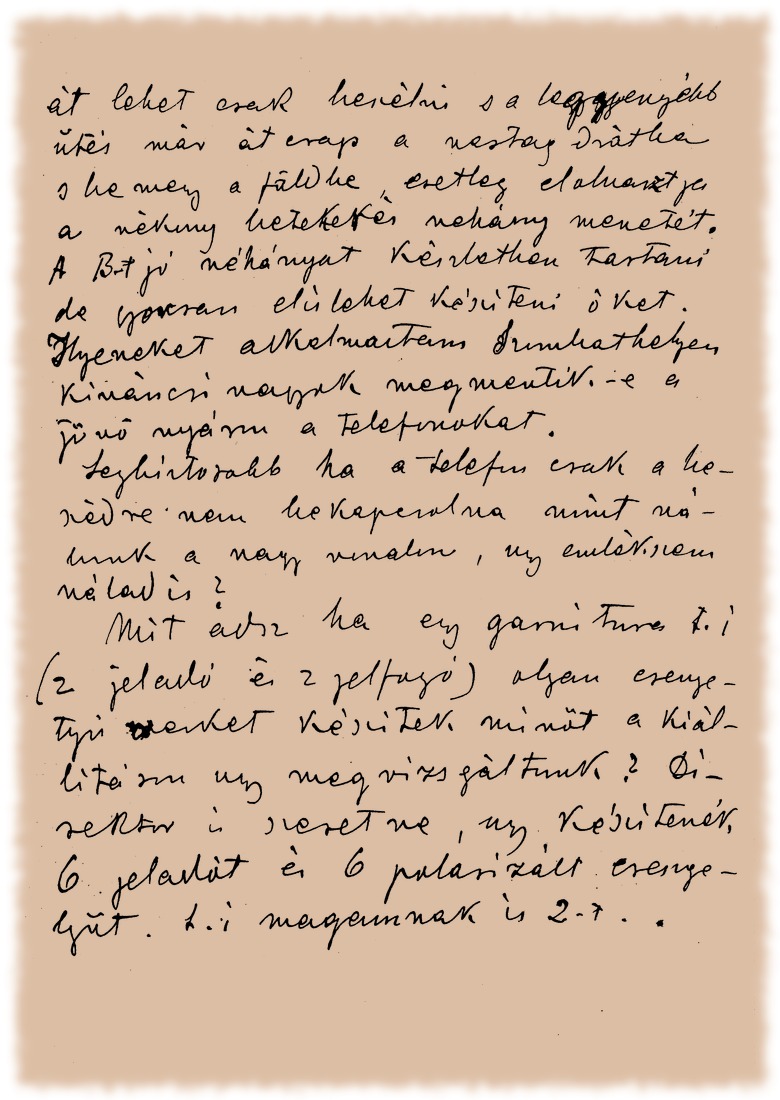 át lehet csak beszélni s a leggyengébb
ütés már át csap a vastag drótba
s be megy a földbe, esetleg elolvasztja
a vékony betekerés néhány menetét.
A B-t jó néhányat készletben tartani
de gyorsan el is lehet készíteni őket.
Ilyeneket alkalmaztam Szombathelyen
kiváncsi vagyok megmentik-e a
jövő nyáron a telefonokat.
Legbiztosabb ha a telefon csak a be-
szédre van bekapcsolva mint ná-
lunk a nagy vonalon, ugy emlékszem
nálad is?
Mit adsz ha egy garnitura t.i
(2 jeladó és 2 jelfogó) olyan csenge-
tyű készitek minőt a kiál-
litáson ugy megvizsgáltunk? Di-
rektor is szeretne, ugy készitenék
6 jeladót és 6 polarizált csenge-
tyűt. t.i magamnak is 2-t.